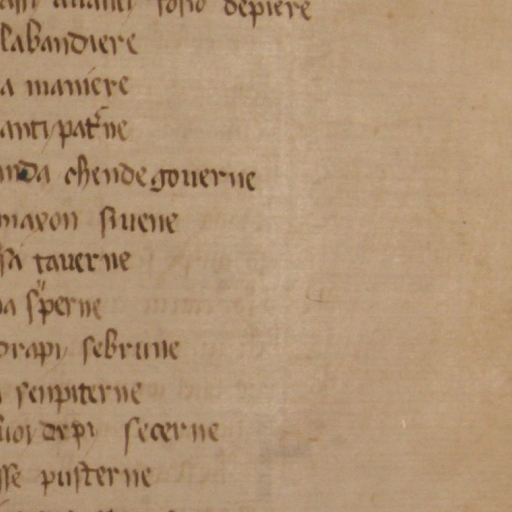 auanti fosio depiere
labandiere
a maniere
anti patne
nda chende gouerne
maxon siuene
sa tauerne
a sperne
drapi sebrune
senpiterne
uoi depi secerne
sse pusterne